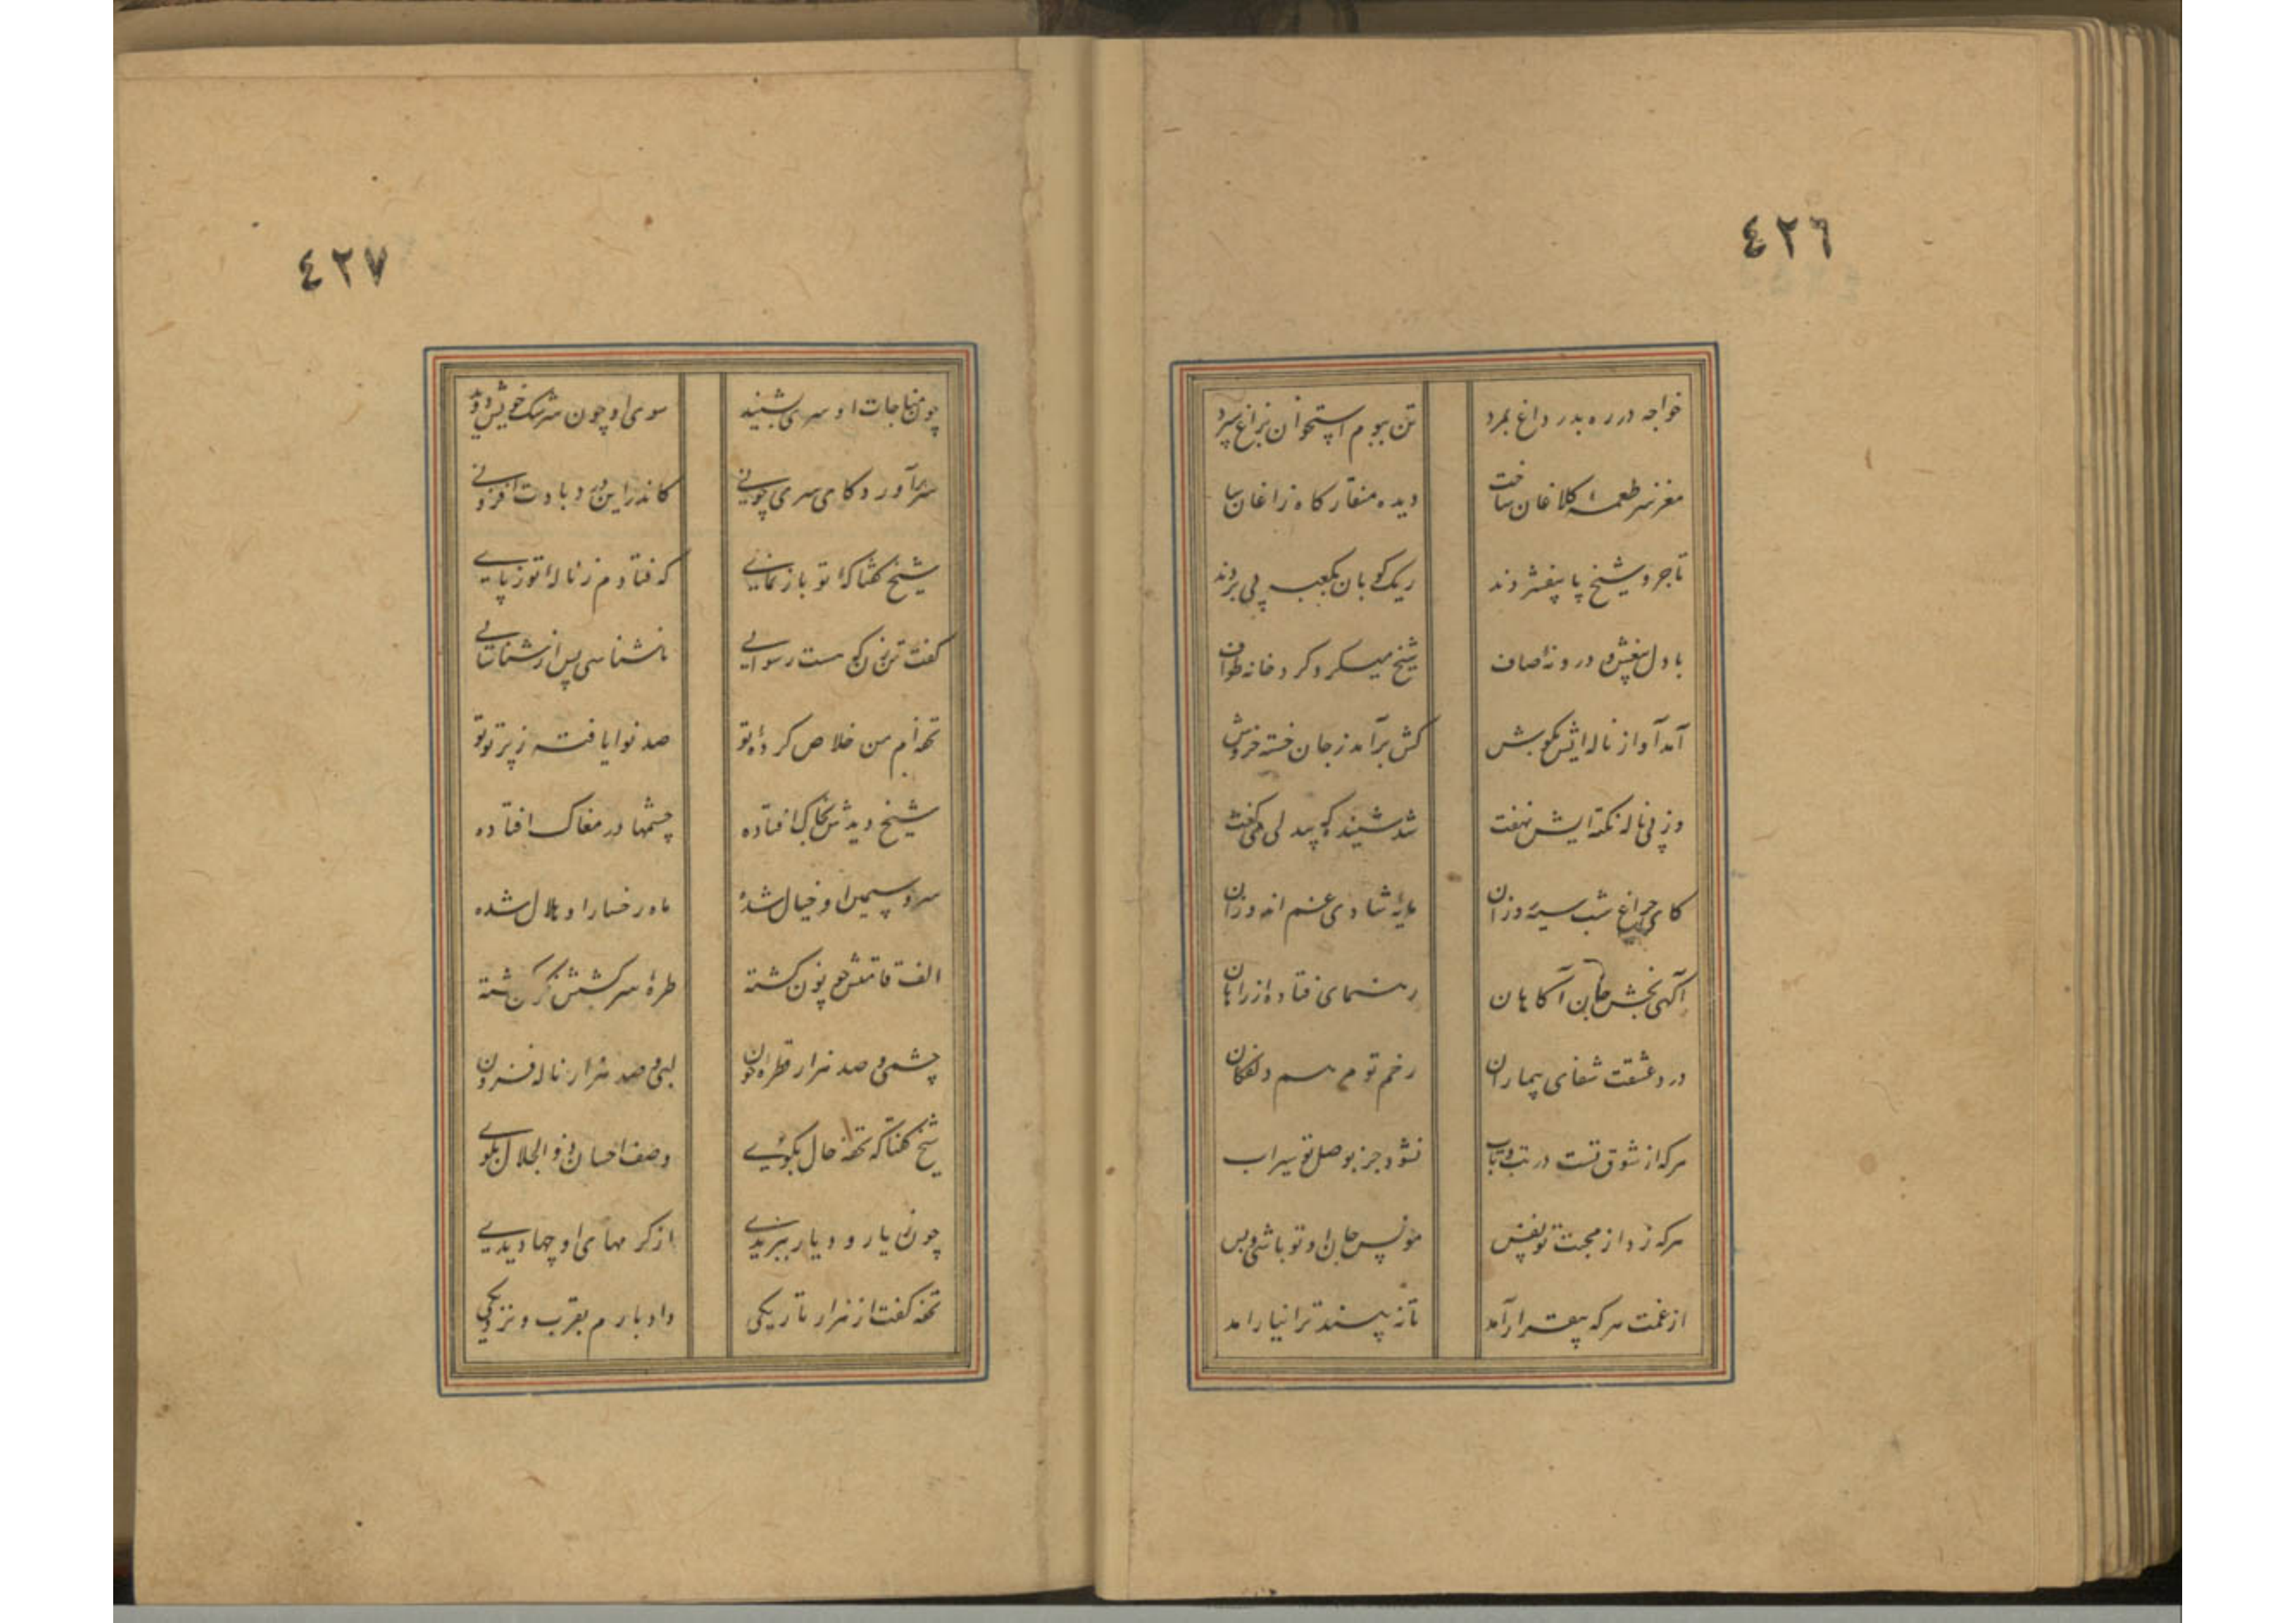 ٤٢٦
خواجه در ره بدرد داغ بمرد تن ببوم استخوان بزاغ سپرد
مغز سر طعمهٔ کلاغان ساخت دیده منقار کاه زاغان ساخت
تاجر و شیخ پا بیفشردند ریک کوبان بکعبه پی بردند
با دل بیغش و درونهٔ صاف شیخ میکرد کرد خانه طواف
آمد آواز ناله ایش بکوش کش برآمد ز جان خسته خروش
وز پی ناله نکته ایش نهفت شد شنیده که بیدلی میکفت
کای چراغ شب سیه روزان مایهٔ شادی غم اندوزان
آکهی بخش جان آکاهان رهنمای فتاده از راهان
درد عشقت شفای بیماران زخم تو مرهم دلفکاران
هرکه از شوق تست در تب و تاب نشود جز بوصل تو سیراب
هرکه زد از محبت تو نفس مونس جان او تو باشی و بس
از غمت هرکه بیقرار آمد تا نه بیند ترا نیارامد
٤٢٧
چون مناجات او سری بشنید سوی او چون سرشک خویش دوید
سر برآورد کای سری چونی کاندر این درد بادت افزونی
شیخ کفتا که ای تو باز نمایی که فتادم ز ناله ات از پای
کفت ترن زن کو ست رسوایی ناشناسی پس از شناسایی
تحفه ام من خلاص کردهٔ تو صد نوا یافته ز پرتو تو
شیخ دیدش بخاک افتاده چشمها در مغاک افتاده
سرو سیمین او خیال شده ماه رخسار او هلال شده
الف قامتش چو نون کشته طرهٔ سرکشش نکون کشته
چشمی و صد هزار قطرهٔ خون لبی و صد هزار ناله فزون
شیخ کفتا که تحفه حال بکوی وصف احسان ذو الجلال بکوی
چون ز یار و دیار ببریدی از کرمهای او چها دیدی
تحفه کفت از هزار تاریکی داد بارم بقرب و نزدیکی